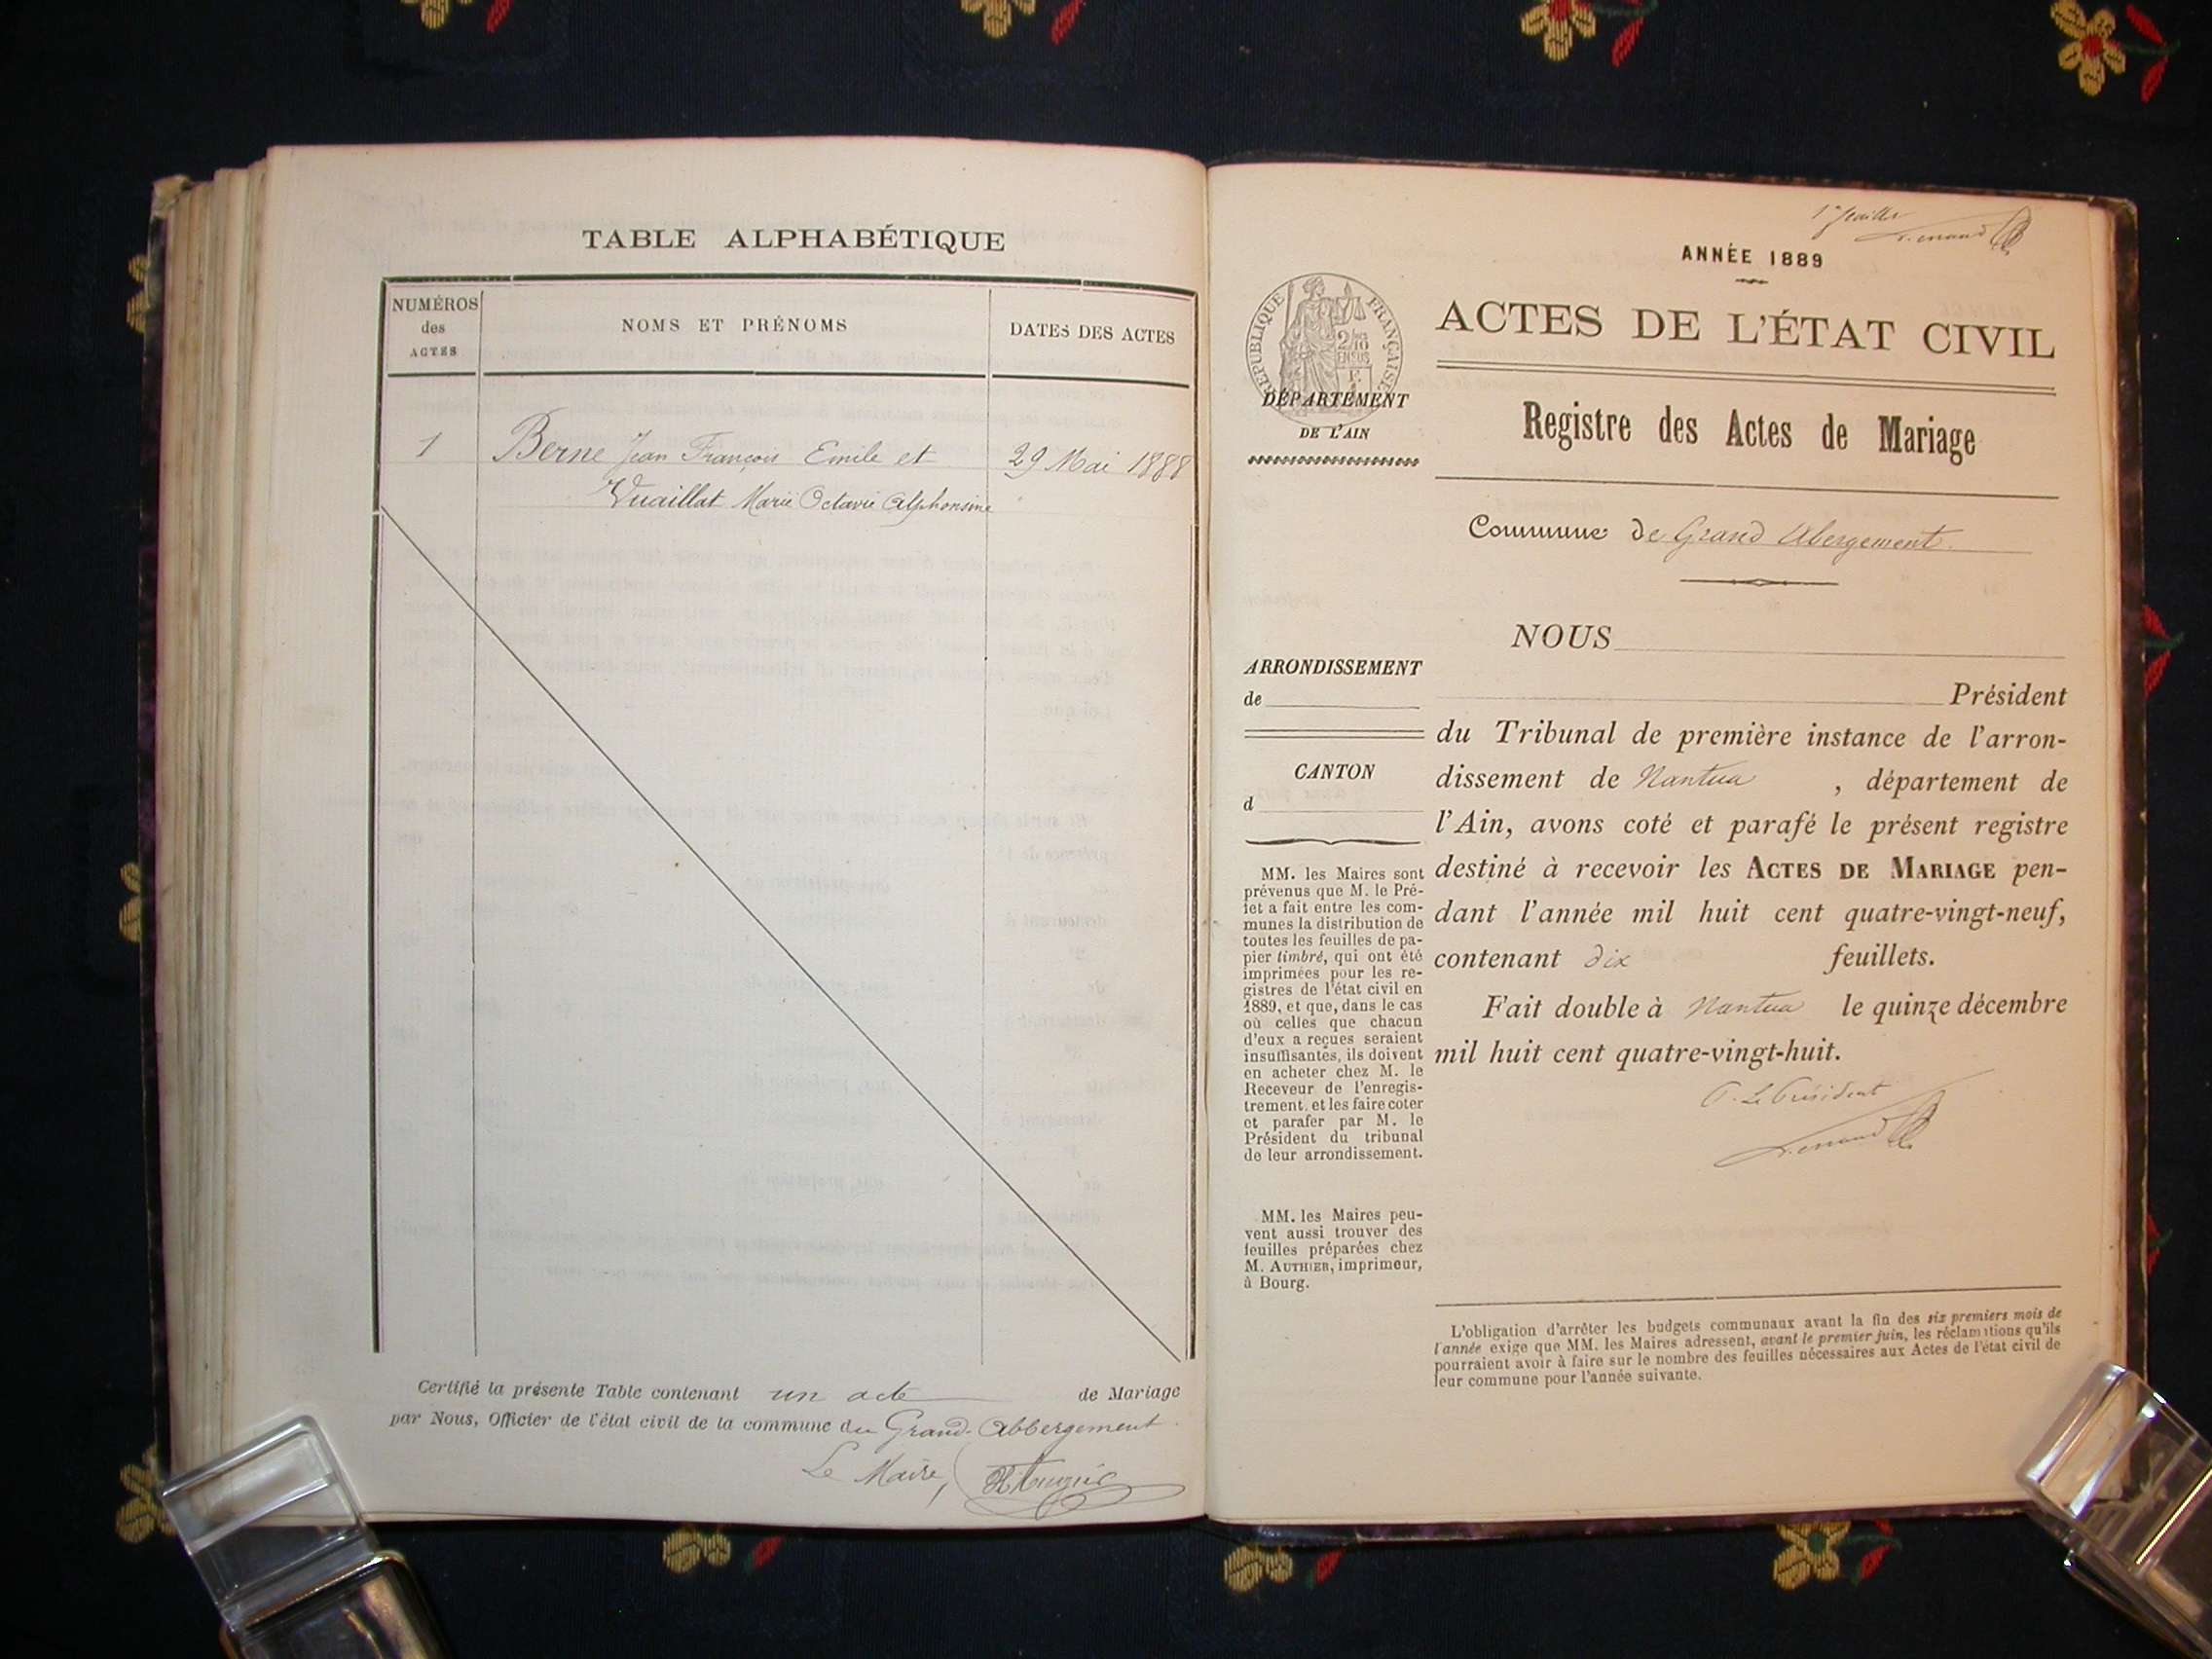 TABLE ALPHABÉTIQUE
NUMÉROS
des
ACTES
NOMS ET PRÉNOMS
DATES DES ACTES
1
Berne Jean François Emile et
29 Mai 1888
Vuaillat Marie Octavie Alphonsine
Certifié la présente Table contenant un acte de Mariage
par Nous, Officier de l'état civil de la commune du Grand-Abbergement.
Le Maire,
1er feuillet
ANNÉE 1889
RÉPUBLIQUE FRANÇAISE
2/10
EN SUS
ACTES DE L'ÉTAT CIVIL
DÉPARTEMENT
DE L'AIN
Registre des Actes de Mariage
Commune de Grand Abergement.
NOUS
Président
du Tribunal de première instance de l'arron-
dissement de Nantua , département de
l'Ain, avons coté et parafé le présent registre
destiné à recevoir les ACTES DE MARIAGE pen-
dant l'année mil huit cent quatre-vingt-neuf,
contenant dix feuillets.
Fait double à Nantua le quinze décembre
mil huit cent quatre-vingt-huit.
P. Le Président
ARRONDISSEMENT
de
CANTON
d
MM. les Maires sont
prévenus que M. le Pré-
fet a fait entre les com-
munes la distribution de
toutes les feuilles de pa-
pier timbré, qui ont été
imprimées pour les re-
gistres de l'état civil en
1889, et que, dans le cas
où celles que chacun
d'eux a reçues seraient
insuffisantes, ils doivent
en acheter chez M. le
Receveur de l'enregis-
trement, et les faire coter
et parafer par M. le
Président du tribunal
de leur arrondissement.
MM. les Maires peu-
vent aussi trouver des
feuilles préparées chez
M. AUTHIER, imprimeur,
à Bourg.
L'obligation d'arrêter les budgets communaux avant la fin des six premiers mois de
l'année exige que MM. les Maires adressent, avant le premier juin, les réclamations qu'ils
pourraient avoir à faire sur le nombre des feuilles nécessaires aux Actes de l'état civil de
leur commune pour l'année suivante.